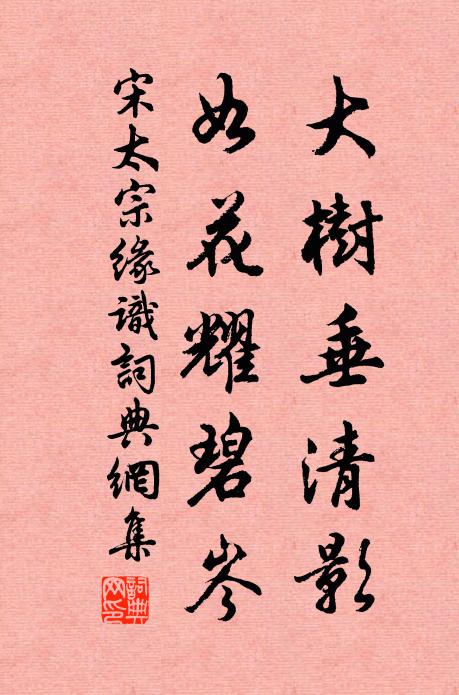 大樹垂清影
如花耀碧岑
宋太宗緣識詞典網集
詞典網印